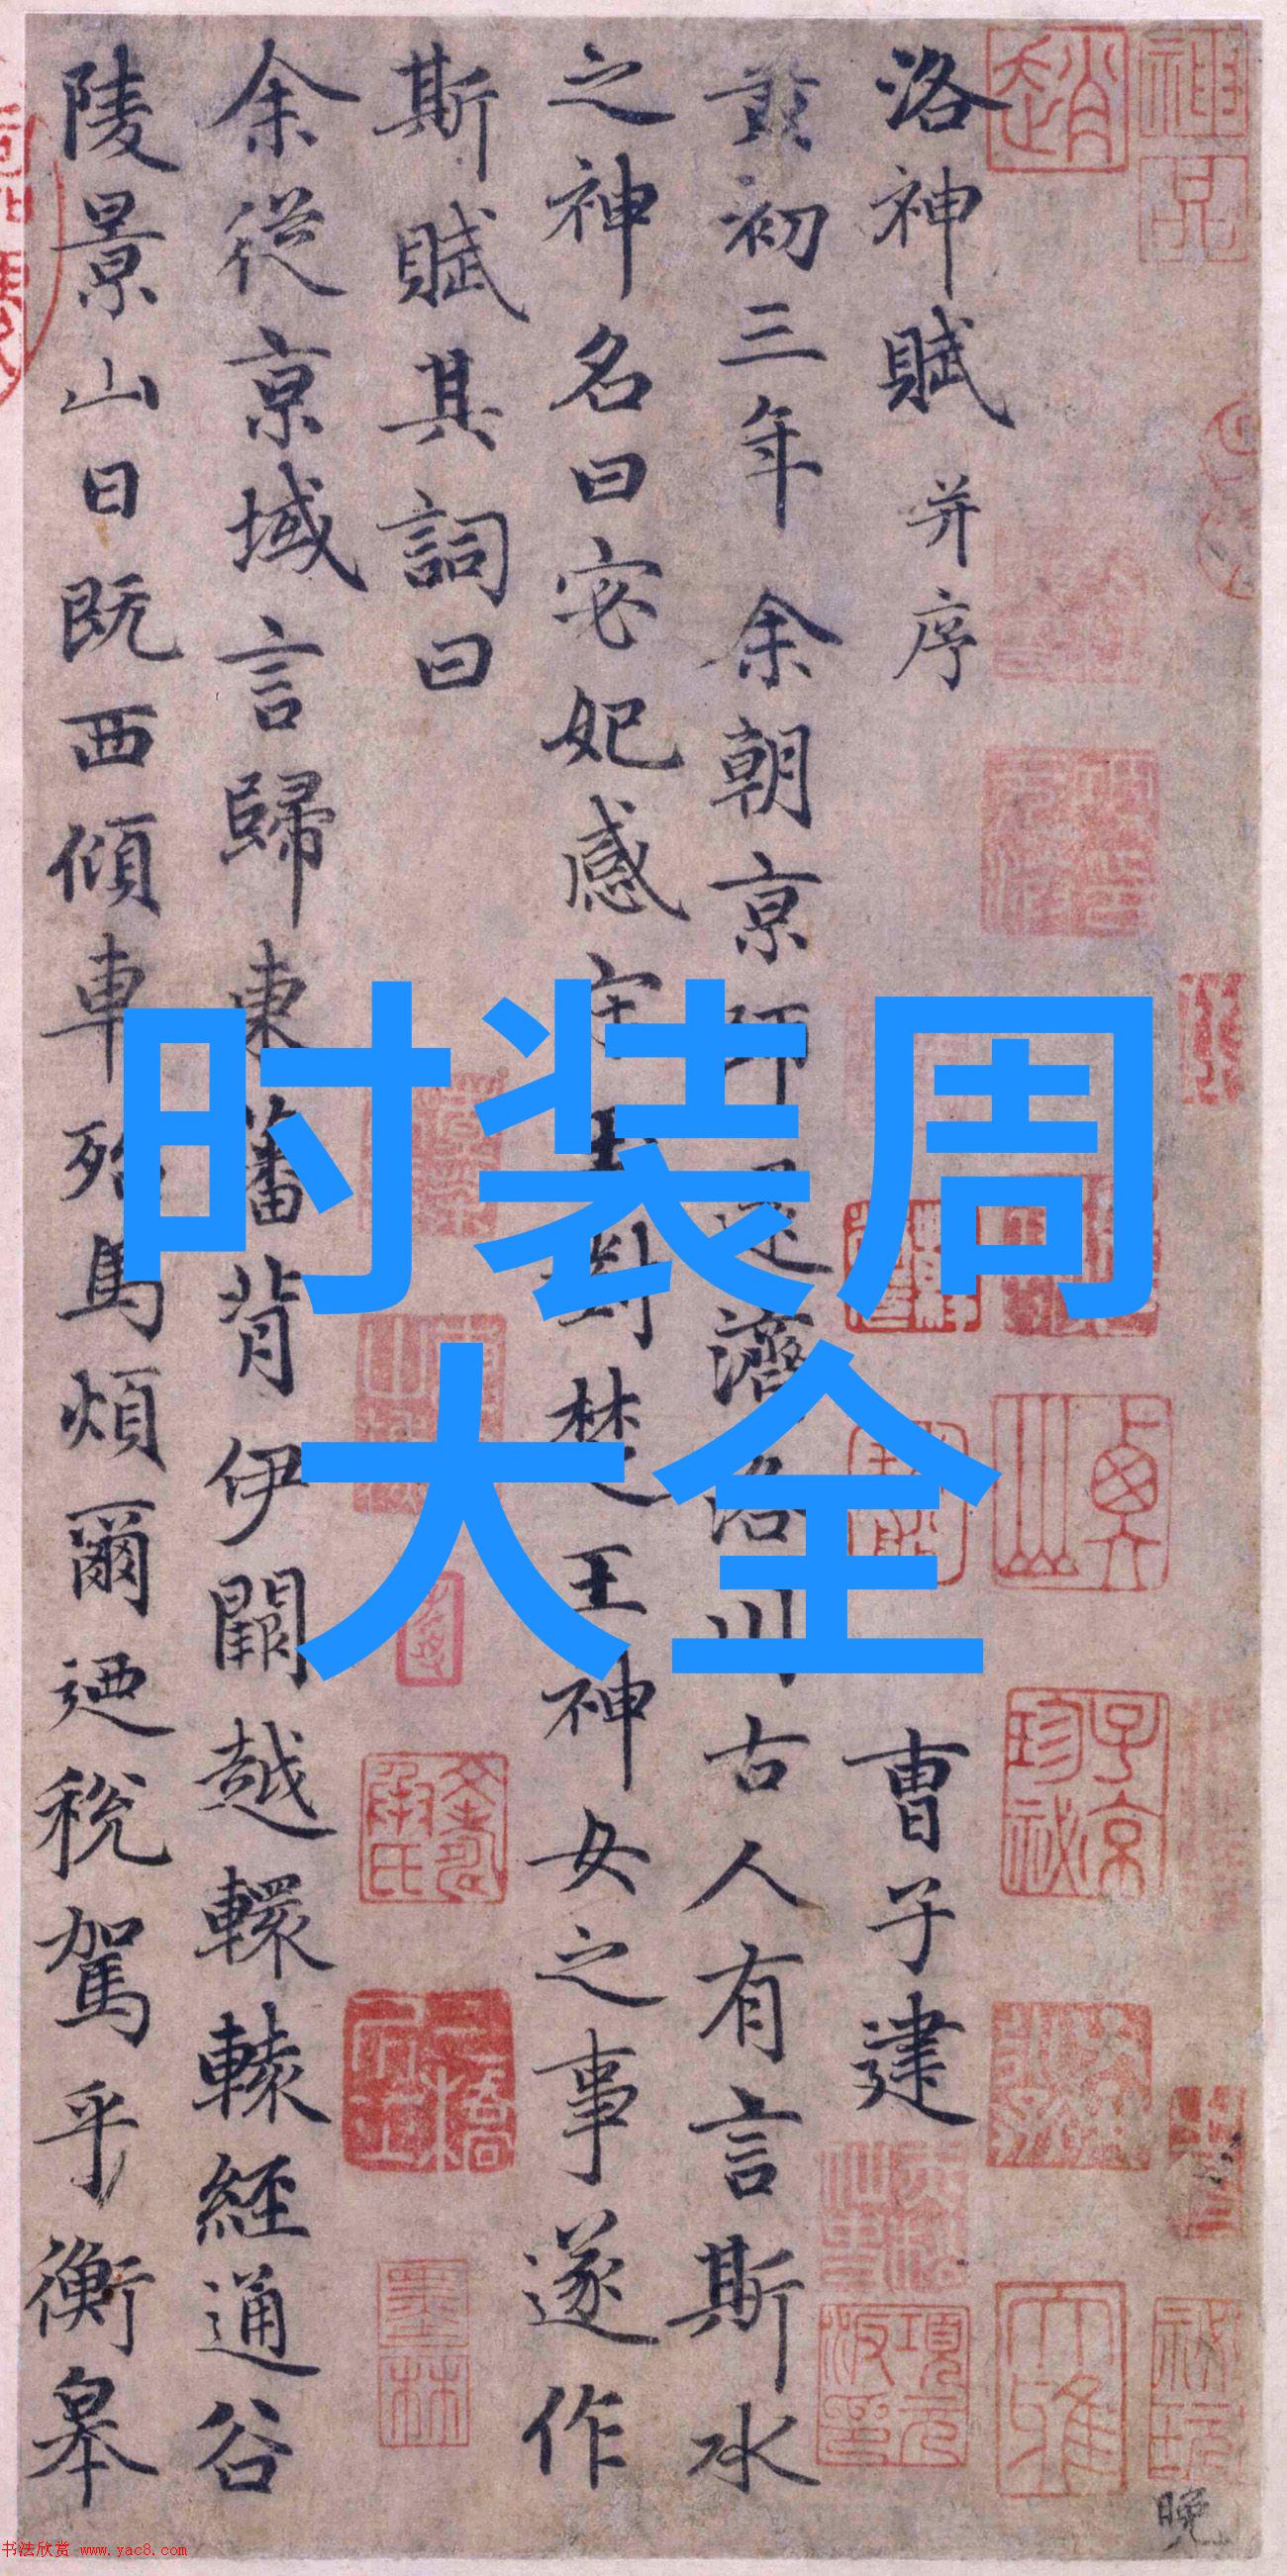 洛神賦 并序 曹子建
黄初三年余朝京師還濟洛川古人有言斯水
之神名曰宓妃感宋玉對楚王神女之事遂作
斯賦其詞曰
余從京域言歸東藩背伊闕越轘轅經通谷
陵景山日既西傾車殆馬煩爾迺稅駕乎衡皋
时装周
大全
趙
子京
珍祕
項元
汴印
墨林
大雅
晚
书法欣赏 www.yac8.com